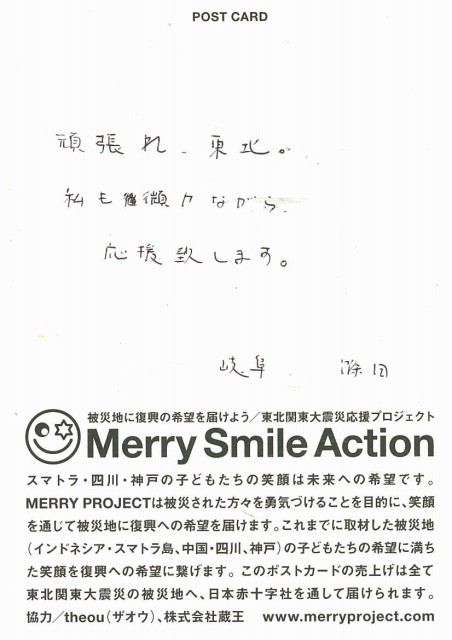 POST CARD
頑張れ、東北。
私も微力ながら、
応援致します。
岐阜
被災地に復興の希望を届けよう／東北関東大震災応援プロジェクト
Merry Smile Action
スマトラ・四川・神戸の子どもたちの笑顔は未来への希望です。
MERRY PROJECTは被災された方々を勇気づけることを目的に、笑顔
を通じて被災地に復興への希望を届けます。これまでに取材した被災地
（インドネシア・スマトラ島、中国・四川、神戸）の子どもたちの希望に満ち
た笑顔を復興への希望に繋げます。このポストカードの売上げは全て
東北関東大震災の被災地へ、日本赤十字社を通して届けられます。
協力／theou（ザオウ）、株式会社蔵王 www.merryproject.com